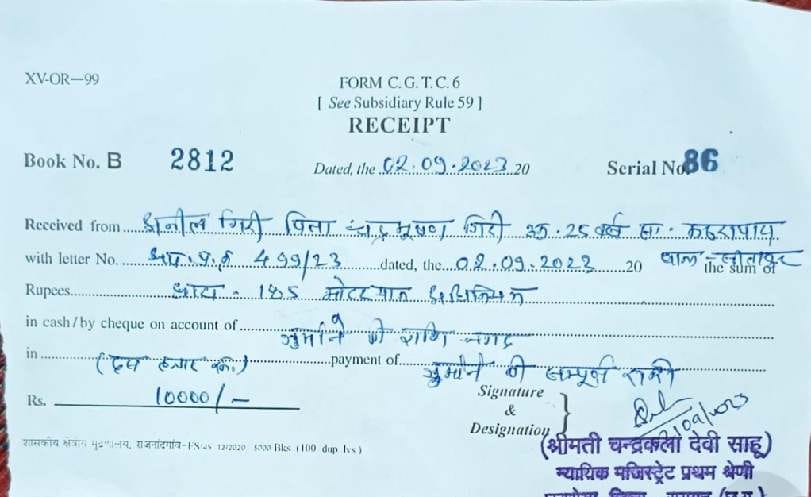 XV-OR—99
FORM C. G. T. C. 6
[ See Subsidiary Rule 59 ]
RECEIPT
Book No. B 2812 Dated, the 02.09.2023 20 Serial No. 86
Received from गिरी पिता चन्द्रभूषण गिरी उम्र. 25 वर्ष सा.
with letter No. 499/23 dated, the 02.09.2023 20 the sum of
Rupees धारा - 185 मोटर यान अधिनियम
in cash/by cheque on account of जुर्माने की राशि नगद
in (दस हजार रू.) payment of जुर्माने की सम्पूर्ण राशी
Rs. 10000/-
Signature
&
Designation
शासकीय क्षेत्रीय मुद्रणालय, राजनांदगांव- 12/2020 5000 Bks. (100 dup. lvs)
(श्रीमती चन्द्रकला देवी साहू)
न्यायिक मजिस्ट्रेट प्रथम श्रेणी